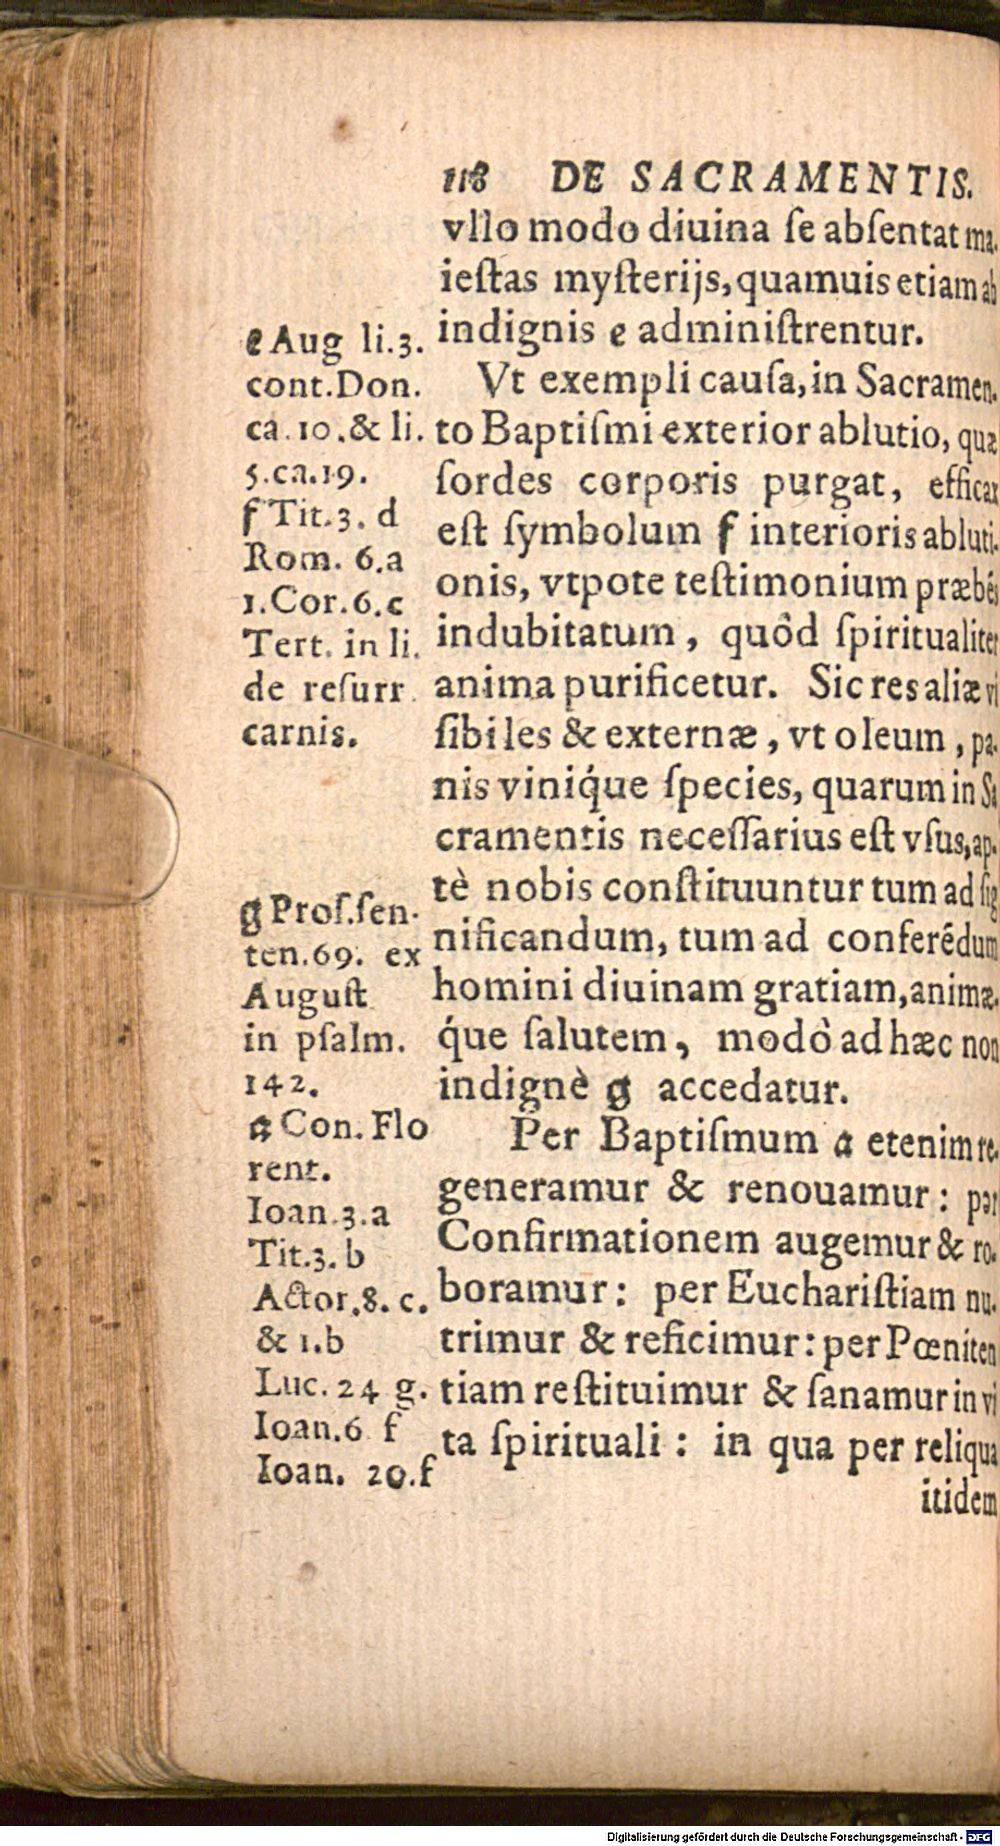 118 DE SACRAMENTIS.
vllo modo diuina ſe abſentat ma-
ieſtas myſterijs, quamuis etiam ab
indignis e adminiſtrentur.
Vt exempli cauſa, in Sacramen-
to Baptiſmi exterior ablutio, quæ
ſordes corporis purgat, efficax
eſt ſymbolum f interioris abluti-
onis, vtpote teſtimonium præbẽs
indubitatum, quòd ſpiritualiter
anima purificetur. Sic res aliæ vi
ſibiles & externæ, vt oleum, pa-
nis viniq́ue ſpecies, quarum in Sa
cramentis neceſſarius eſt vſus, ap-
tè nobis conſtituuntur tum ad ſig
nificandum, tum ad conferẽdum
homini diuinam gratiam, animæ-
q́ue ſalutem, modò ad hæc non
indignè g accedatur.
Per Baptiſmum a etenim re-
generamur & renouamur: per
Confirmationem augemur & ro-
boramur: per Euchariſtiam nu-
trimur & reficimur: per Pœniten
tiam reſtituimur & ſanamur in vi
ta ſpirituali: in qua per reliqua
itidem
e Aug li.3.
cont.Don.
ca.10.& li.
5.ca.19.
f Tit.3. d
Rom. 6.a
1.Cor.6.c
Tert. in li.
de reſurr.
carnis.
g Proſ.ſen-
ten.69. ex
Auguſt
in pſalm.
142.
a Con. Flo
rent.
Ioan.3.a
Tit.3. b
Actor.8. c.
& 1.b
Luc. 24 g.
Ioan.6 f
Ioan. 20.f
Digitalisierung gefördert durch die Deutsche Forschungsgemeinschaft - DFG